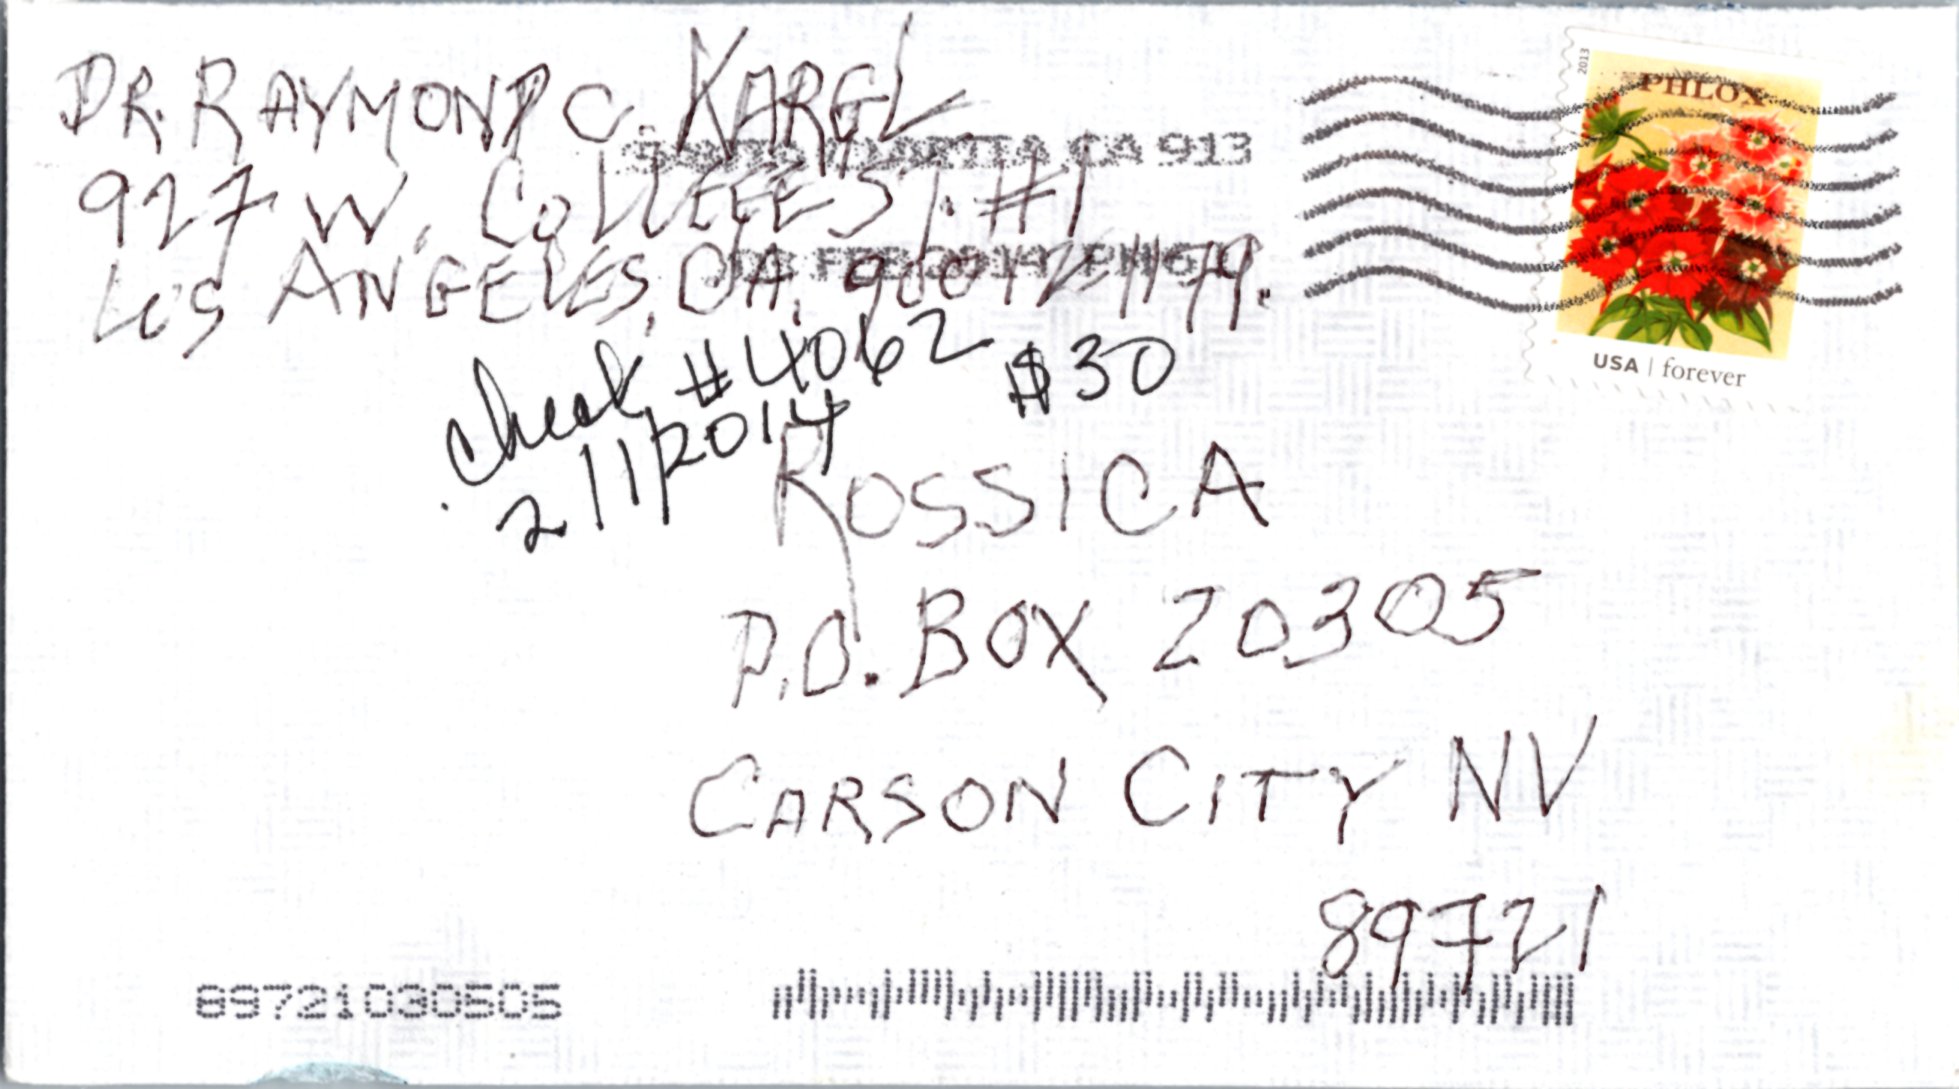 DR. RAYMOND C. KARGL
927 W. COLLEGE ST. #1
LOS ANGELES, CA. 90012-1179.
CA 913
FEB 2014 PM
check #4062 $30
2/1/2014
2013
PHLOX
USA | forever
ROSSICA
P.O. BOX 20305
CARSON CITY NV
89721
89721030505